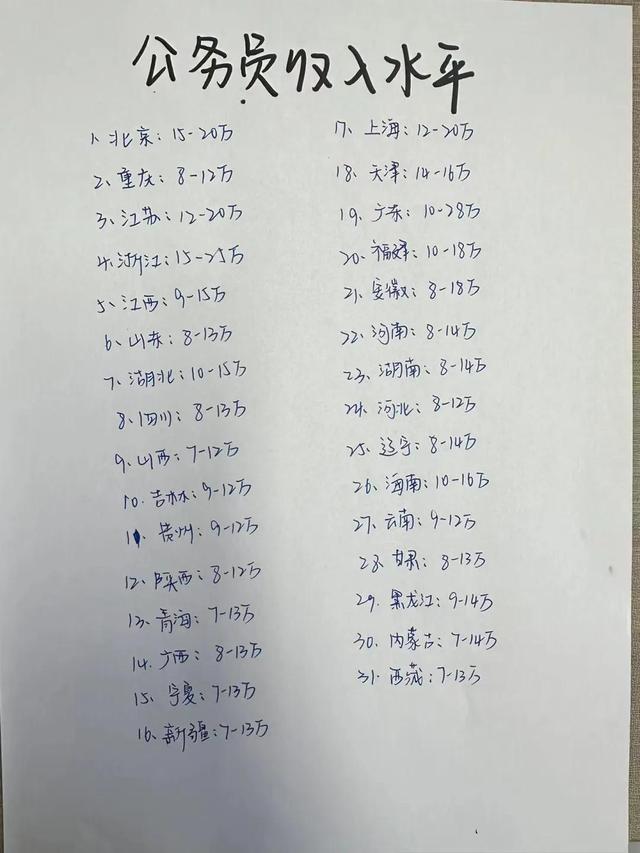 公务员收入水平
1、北京：15-20万
2、重庆：8-12万
3、江苏：12-20万
4、浙江：15-25万
5、江西：9-15万
6、山东：8-13万
7、湖北：10-15万
8、四川：8-13万
9、山西：7-12万
10、吉林：9-12万
11、贵州：9-12万
12、陕西：8-12万
13、青海：7-13万
14、广西：8-13万
15、宁夏：7-13万
16、新疆：7-13万
17、上海：12-20万
18、天津：14-16万
19、广东：10-28万
20、福建：10-18万
21、安徽：8-18万
22、河南：8-14万
23、湖南：8-14万
24、河北：8-12万
25、辽宁：8-14万
26、海南：10-16万
27、云南：9-12万
28、甘肃：8-13万
29、黑龙江：9-14万
30、内蒙古：7-14万
31、西藏：7-13万